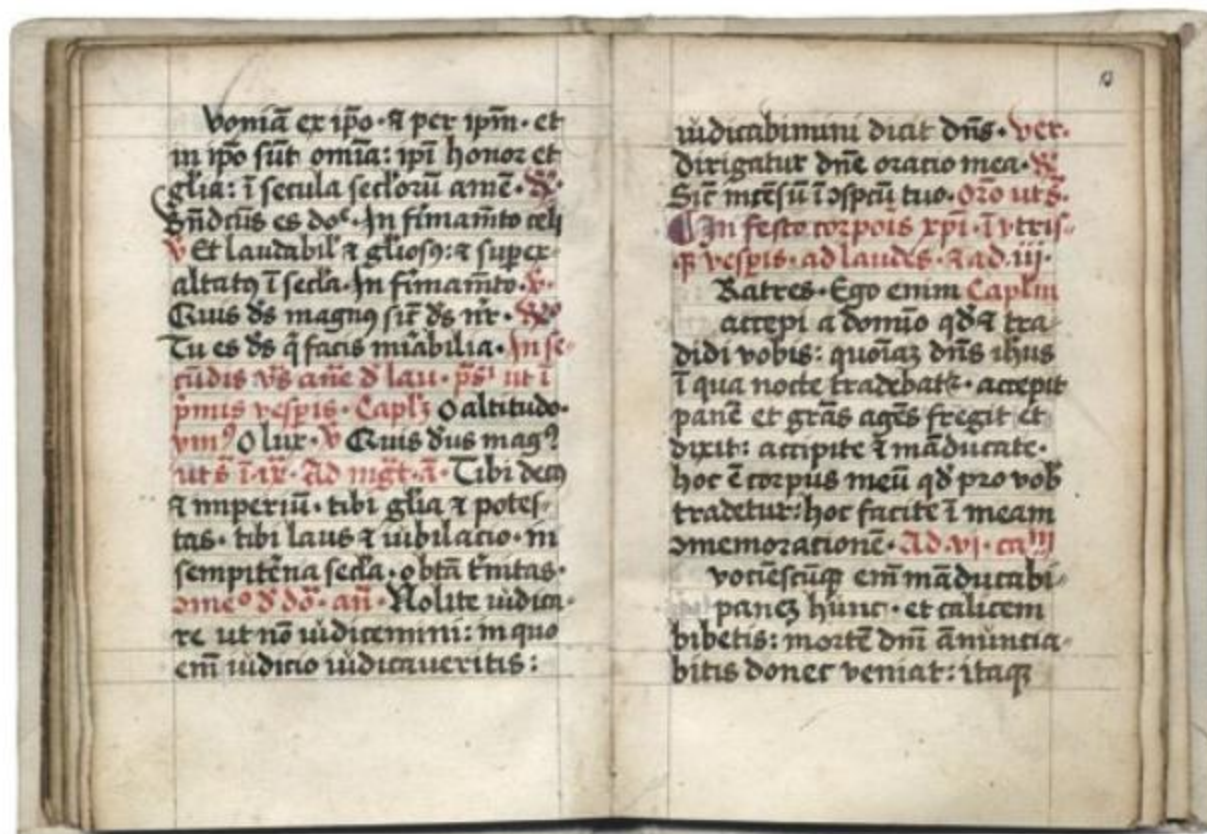 voniā ex ip̄o · ⁊ per ip̄m · et
in ip̄o sūt om̄ia: ip̄i honor et
gl̄ia: ī secula secl̄orū amē · R̄ ·
Bn̄dictꝰ es do · In firmam̄to celi
v̄ Et laudabil̓ ⁊ gl̄iosꝯ: ⁊ super-
altatꝯ ī secl̄a · In firmam̄to · v̄ ·
Quis ds̄ magnꝯ sic̄ ds̄ nr̄ · R̄
Tu es ds̄ q̄ facis mīabilia · In se-
cūdis vs̄ an̄e d̄ lau · ps̄ ut ī
p̄mis vesp̄is · Capl̄ꝫ O altitudo ·
ymꝰ O lux · v̄ Quis dꝰus magꝰ
ut s̄ ī · ix · Ad mḡt · ā · Tibi decꝯ
⁊ imperiū · tibi gl̄ia ⁊ potes-
tas · tibi laus ⁊ iubilacio · in
sempitēna secl̄a · o btā t̄nitas ·
d̄ do · an̄ · Nolite iudica-
re ut nō iudicemini: in quo
em̄ iudicio iudicaueritis:
13
iudicabimini dicit dn̄s · ver ·
Dirigatur dn̄e oracio mea · R̄
Sic̄ incēsū ī ꝯspc̄u tuo · Or̄o ut s̄ ·
¶ In festo corpoīs xp̄i · ī vtris-
qꝫ vesp̄is · ad laudes · ⁊ ad · iij ·
Ratres · Ego enim Capl̄m
accepi a domīo qd̄ ⁊ tra-
didi vobis: quoīaꝫ dn̄s ih̄us
ī qua nocte tradebat᷑ · accepit
panē et grās agēs fregit et
dixit: accipite ⁊ māducate ·
hoc ē corpus meū qd̄ pro vob̄
tradetur: hoc facite ī meam
ꝯmemoracionē · Ad · vj · ca
vociēscūqꝫ em̄ māducabi-
paneꝫ hūnc · et calicem
bibetis: mortē dn̄i ānuncia-
bitis donec veniat: itaqꝫ